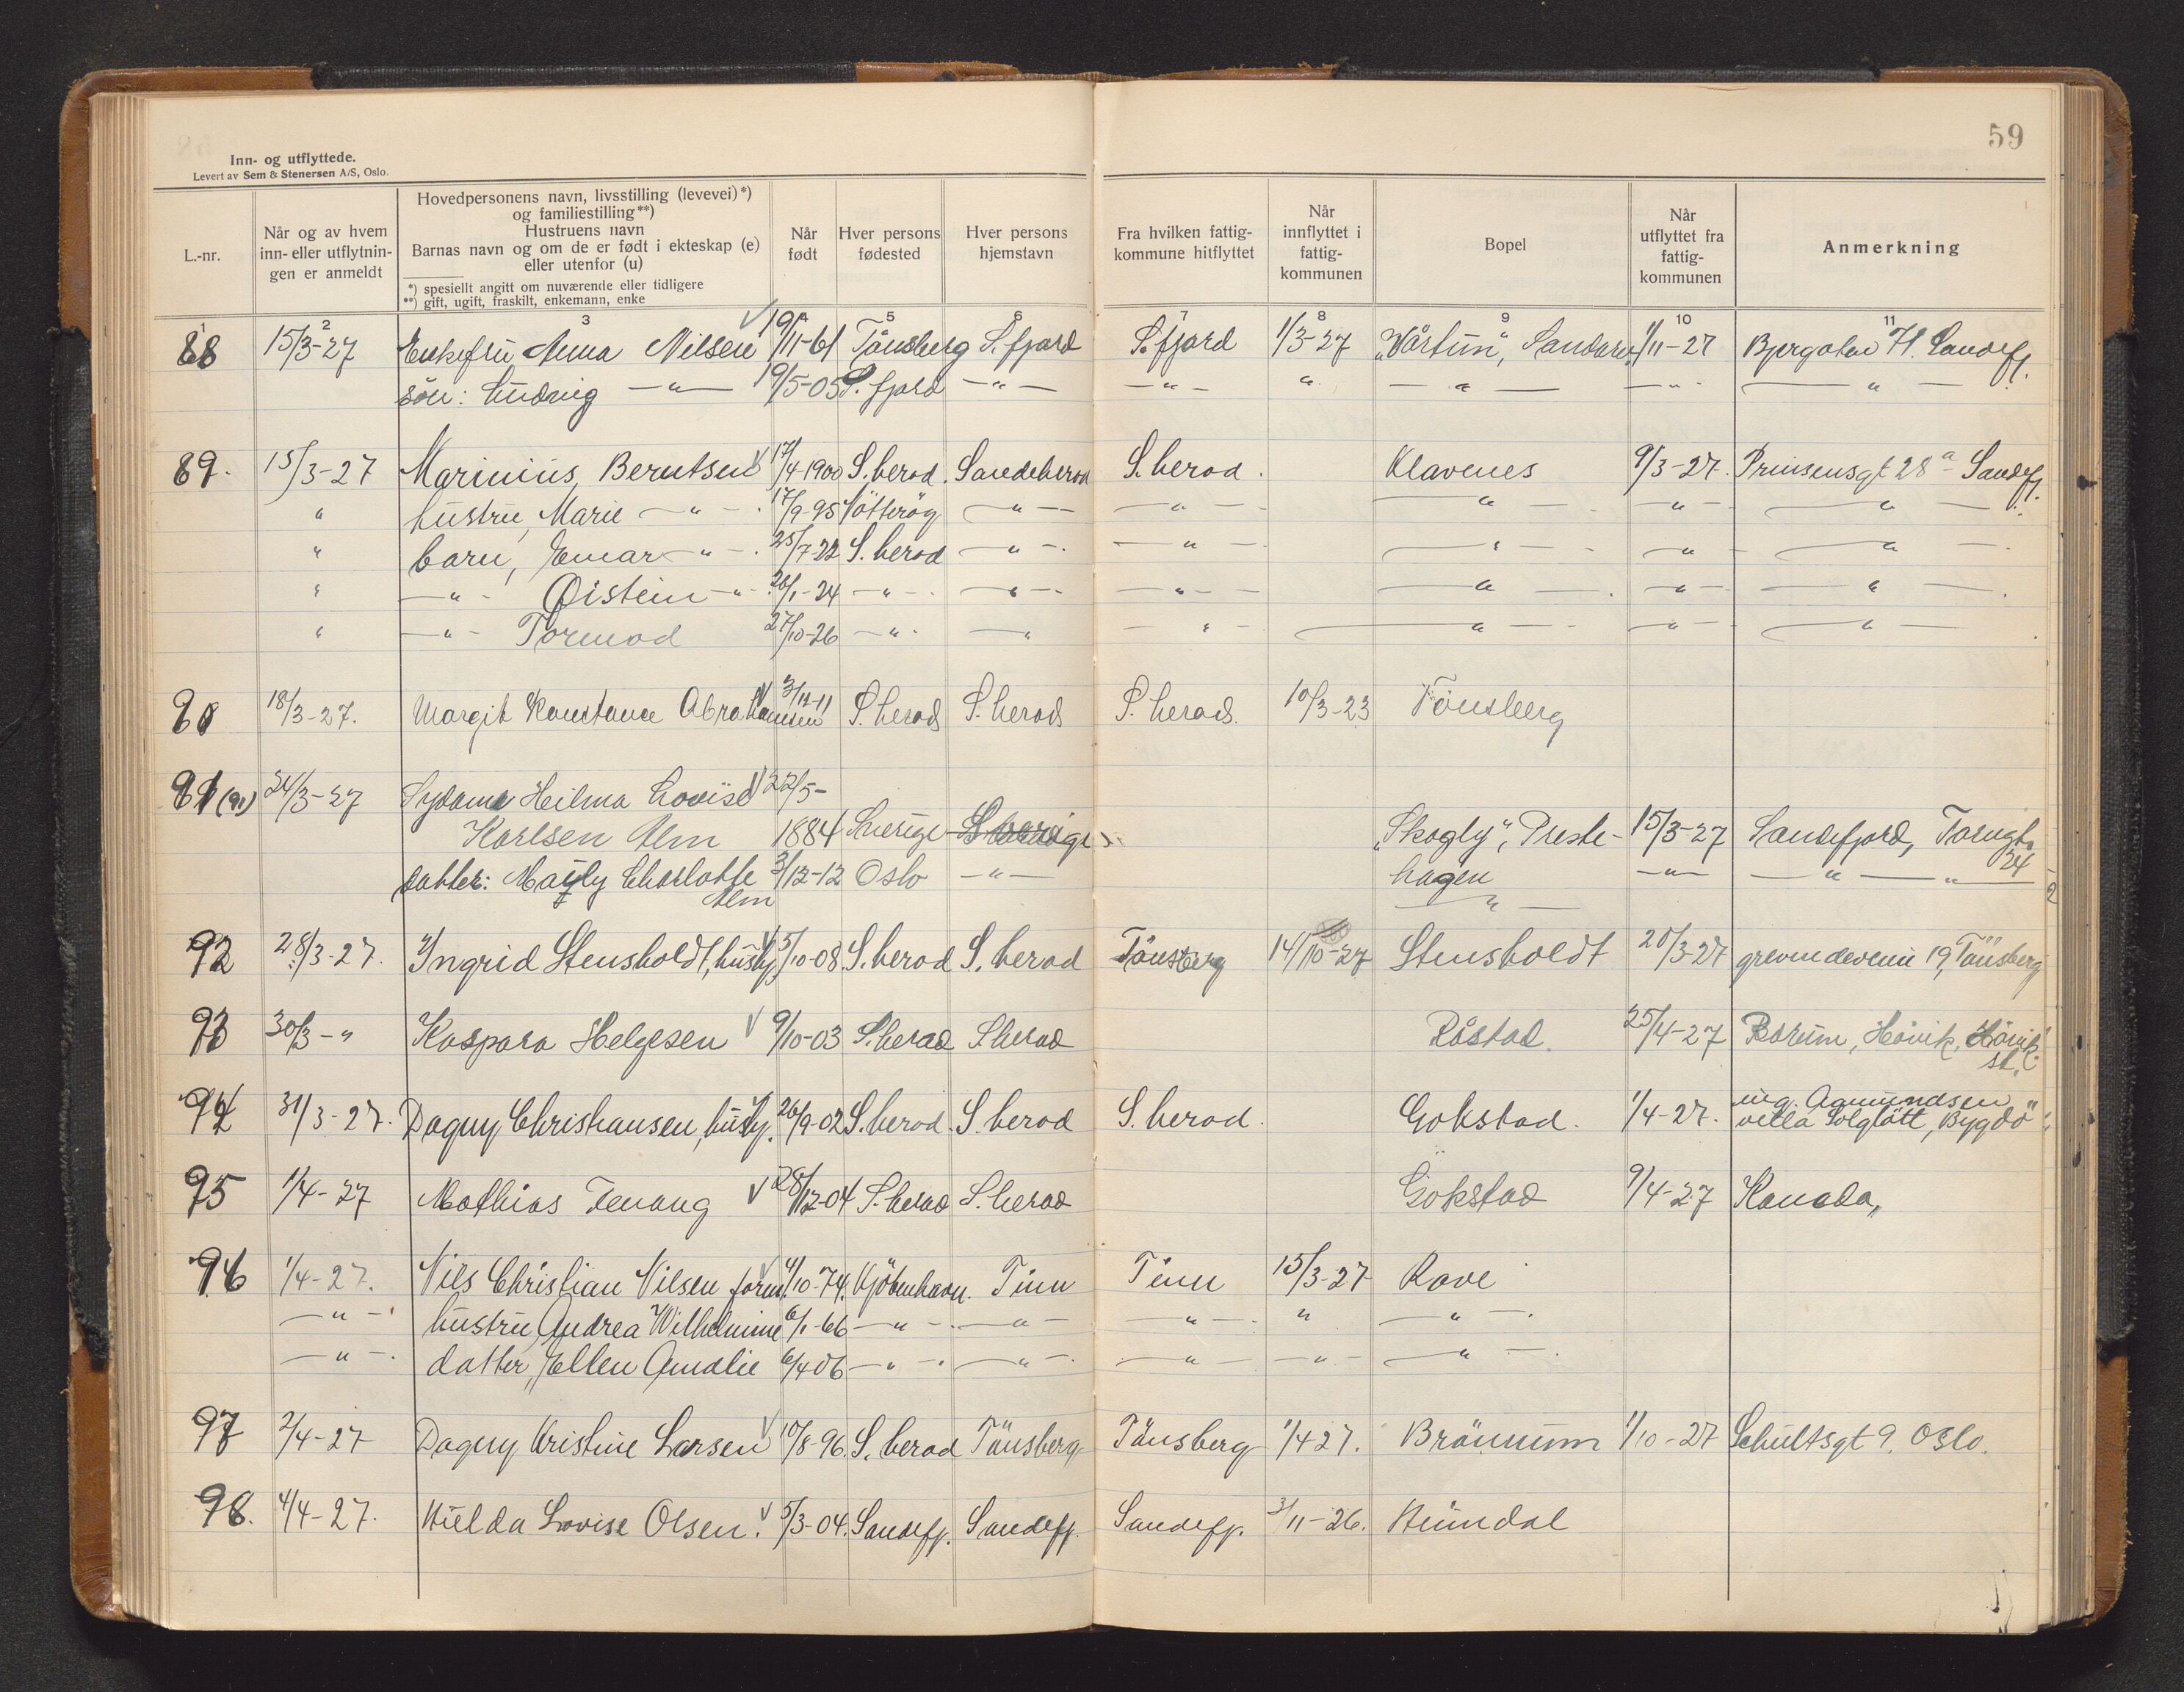 59
Inn- og utflyttede.
Levert av Sem & Stenersen A/S, Oslo.
L.-nr.
Når og av hvem inn- eller utflytnin- gen er anmeldt
Hovedpersonens navn, livsstilling (levevei)*) og familiestilling**) Hustruens navn Barnas navn og om de er født i ekteskap (e) eller utenfor (u)
*) spesiellt angitt om nuværende eller tidligere
**) gift, ugift, fraskilt, enkemann, enke
Når født
Hver persons fødested
Hver persons hjemstavn
Fra hvilken fattig- kommune hitflyttet
Når innflyttet i fattig- kommunen
Bopel
Når utflyttet fra fattig- kommunen
Anmerkning
1 2 3 5 6 7 8 9 10 11
88 15/3-27 Enkefru Anna Nilsen 19/11-61 Tönsberg S.fjord S.fjord 1/3-27 „Vårtun", Sandar 1/11-27 Bjergaten 71. Sandefj.
sön: Ludvig —"— 19/5-05 S.fjord —"— —"— " —"— —"— —"—
89. 15/3-27 Marinius Berntsen 17/4-1900 S.herad. Sandeherad S.herad. Klavenes 9/3-27. Prinsensgt 28a Sandefj.
" hustru, Marie —"— 17/9-95 Nötteröy —"— —"— —"— —"— —"—
" barn, Einar —"— 25/7-22 S.herad —"— —"— —"— —"— —"—
" —"— Øistein —"— 26/1-24 —"— —"— —"— —"— —"— —"—
" —"— Tormod 27/10-26 —"— —"— —"— —"— —"— —"—
90 18/3-27. Margit Konstance Abrahamsen 3/11-11 S.herad S.herad S.herad. 10/3-23 Tönsberg
91 (91) 24/3-27 Sydame Heilma Lovise 22/5-
Karlsen Alm 1884 Sverige „Skogly", Preste- 15/3-27 Sandefjord, Torvgt.
24
datter: Mayly Charlotte 3/12-12 Oslo —"— hagen —"— —"—
Alm —"—
92 28/3-27. Ingrid Stensholdt, hush. 5/10-08 S.herad S.herad Tönsberg 14/10-27 Stensholdt 20/3-27 grevindeveiu 19, Tönsberg
93 30/3-" Kaspara Helgesen 9/10-03 S.herad S.herad Råstad. 25/4-27 Bærum, Hövik, Hövik
st.
94 31/3-27. Dagny Christiansen, hush. 26/9-02 S.herad. S.herad S.herad. Gokstad. 1/4-27. ing. Aamundsen
villa Solglött, Bygdö"
95 1/4-27 Mathias Tenang 28/12-04 S.herad S.herad Gokstad 9/4-27 Kanada,
96 1/4-27. Nils Christian Nilsen form. 4/10-74. Kjöbenhavn. Tinn Tinn 15/3-27 Rave
—"— hustru, Andrea Wilhelmine 6/1-66 —"— —"— —"— " —"—
—"— datter, Ellen Amalie 6/4 06 —"— —"— —"— —"— —"—
97 2/4-27 Dagny Kristine Larsen 10/8-96. S.herad Tönsberg Tönsberg 1/4 27. Brönnum 1/10-27 Schultsgt 9. Oslo.
98. 4/4-27. Hilda Lovise Olsen. 5/3-04. Sandefj. Sandefj. Sandefj. 3/11-26. Heimdal